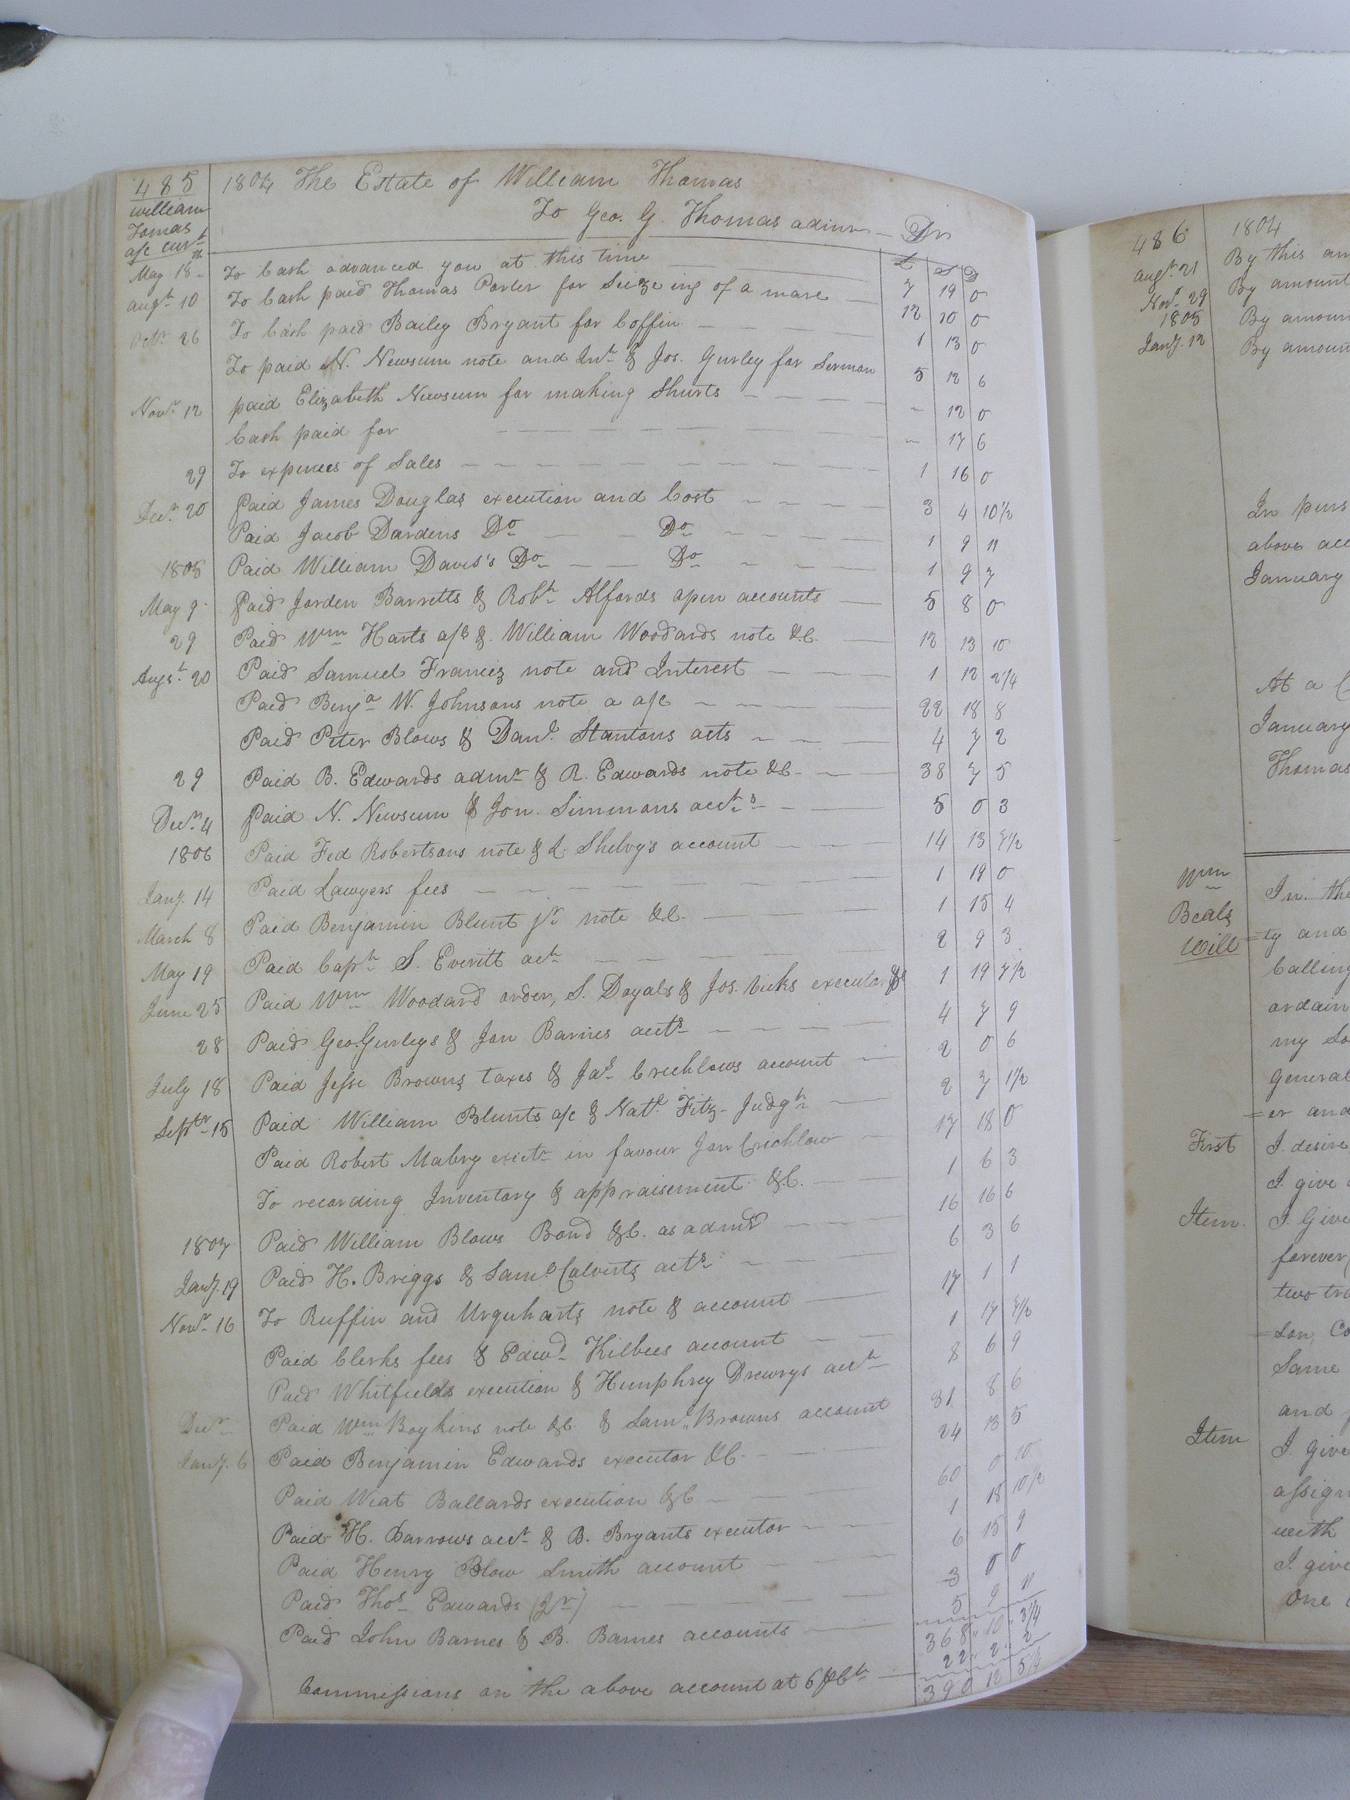 485
william
Tomas
a/c curt
1804 The Estate of William Thomas
To Geo. G. Thomas admr Dr
£ S D
May 18th To Cash advanced you at this time 7 19 0
Augt 10 To Cash paid Thomas Porter for Seizeing of a mare 12 10 0
Octr 26 To Cash paid Bailey Bryant for Coffin 1 13 0
To paid N. Newsum note and Int & Jos. Gurley for Sermon 5 12 6
Novr 12 paid Elizabeth Newsum for making Shurts - 12 0
Cash paid for - 17 6
29 To expences of Sales 1 16 0
Decr 20 Paid James Douglas execution and Cost 3 4 10½
Paid Jacob Dardens Do Do 1 9 11
1805 Paid William Davis's Do Do 1 9 7
May 9 Paid Jorden Barretts & Robt Alfords open accounts 5 8 0
29 Paid Wm Harts a/c & William Woodards note &C. 12 13 10
Augst 20 Paid Samuel Francis note and Interest 1 12 2¼
Paid Benja W. Johnsons note a a/c 22 18 8
Paid Peter Blows & Danl Stantons acts 4 7 2
29 Paid B. Edwards admr & R. Edwards note &C. 38 7 5
Decr 4 Paid N. Newsum & Jon. Simmons accts 5 0 3
1806 Paid Fed Robertsons note & L. Shelvy's account 14 13 7½
Jany. 14 Paid Lawyers fees 1 19 0
March 8 Paid Benjamin Blunt jr note &C. 1 15 4
May 19 Paid Capt S. Everitt act 2 9 3
June 25 Paid Wm Woodard order, S. Doyals & Jos. Vicks execution 1 19 7½
28 Paid Geo. Gurleys & Jon Barnes accts 4 7 9
July 18 Paid Jesse Browns taxes & Jas. Crichlows account 2 0 6
Septr 15 Paid William Blunts a/c & Natl Fitz- Judgt 2 7 1½
Paid Robert Mabry exect in favour Jon Crichlow 17 18 0
To recording Inventory & appraisement &C. 1 6 3
1807 Paid William Blows Bond &C. as admr 16 16 6
Jany. 19 Paid H. Briggs & Saml Calverts acts 6 3 6
Novr 16 To Ruffin and Urquharts note & account 17 1 1
Paid Clerks fees & Edwd Kilbees account 1 17 7½
Paid Whitfields execution & Humphrey Drewrys acct 8 6 9
Decr Paid Wm Boykins note &C & Saml Browns account 31 8 6
Jany. 6 Paid Benjamin Edwards executor &C. 24 13 5
Paid Wiat Ballards execution &C 60 0 10
Paid H. Barrows acct & B. Bryants executor 1 15 10½
Paid Henry Blow Smith account 6 15 9
Paid Thos Edwards (Jr) 3 0 0
Paid John Barnes & B. Barnes accounts 5 9 11
368 " 10 " 3¼
Commissions on the above account at 6 PCt 22 " 2 " 2
390 12 5¼
486
1804
Augt. 21 By this am
Novr 29 By amount
1805 By amoun
Jany. 12 By amoun
In purs
above acc
January
At a C
January
Thomas
Wm
Beals
Will
In the
=ty and
Calling
ordain
my So
General
=er and
First I desire
I give
Item. I Give
forever
two tra
=son, Co
Same
and
Item I give
assign
with
I give
one